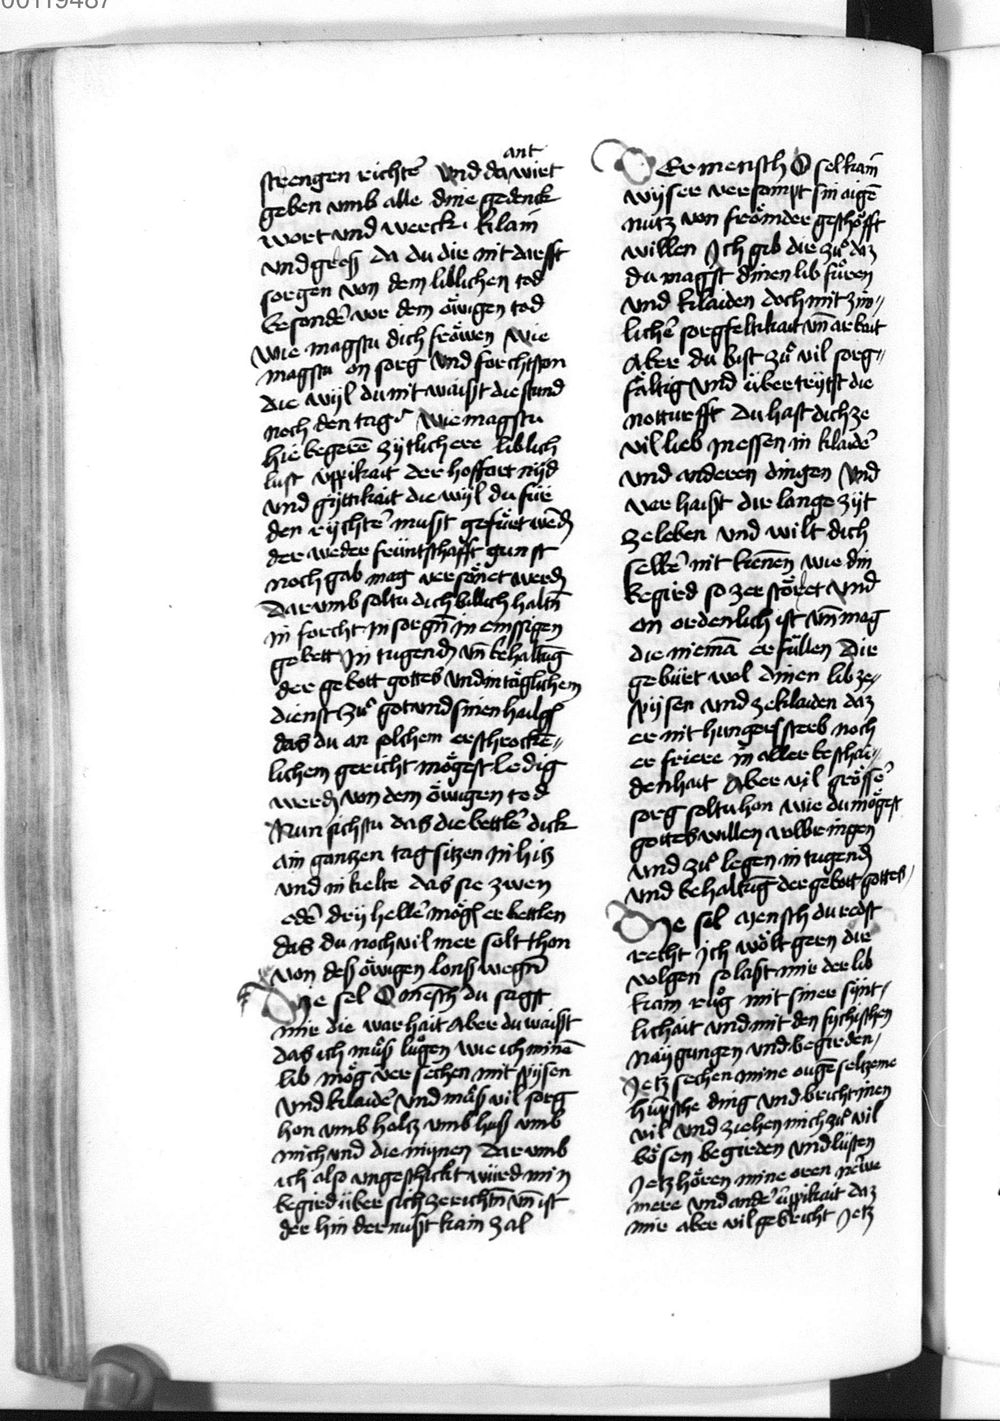 00119487
ant
strengen richte᷑ vnd da wirt
geben vmb alle dine gedenck
wort vnd werck klain
vnd gross da du die nit darfft
sorgen von dem liblichen tod
besonde᷑ vor dem öwigen tod
Wie magstu dich fröwen wie
magstu on sorg vnd forcht ston
die wyl du nit waißt die stund
noch den tag Wie magstu
hie begere᷑ zytlich ere liblich
lust üppikait der hoffart nyd
vnd gyttikait die wyl du für
den rychte᷑ must gefürt werd̄
der weder früntschafft gunst
noch gab mag versönet werd̄
Darumb soltu dich billich haltn̄
in forcht in sorgn̄ in emssigen
gebett In tugend̄ vn̄ behaltūg
der gebott gottes vnd in täglichem
dienst zů got vnd sinen hailgē
das du an solchem erschrocke᷑=
lichem gericht mögest ledig
werd̄ von dem öwigen tod
Nun sichstu das die bettle᷑ dick
ain gantzen tag sitzen in hitz
vnd in kelte das sie zwen
ode᷑ dry helle᷑ mögē erbettlen
das du noch vil mer solt thon
von deß öwigen lonß wegn̄
Die sel O mēsch du sagst
mir die warhait Aber du waißt
das ich můß lůgen wie ich minē
lib mög versechen mit spysen
vnd klaide᷑ vnd můß vil sorg
hon vmb holtz vmb huß vmb
mich vnd die mynen Darumb
ich also vngeschickt würd min
begird über sich ze richtn̄ vn̄ ist
der hin der nußt kain zal
Der mensch O sel kain̄
wyser versompt sin aigē
nutz von frömder geschöfft
willen Ich gib die zů daz
du magst dinen lib fůren
vnd klaiden doch mit zim=
liche᷑ sorgfeltikait vn̄ arbait
Aber du bist zů vil sorg=
fältig vnd übertrytst die
notturfft Du hast dich ze
vil lieb In essen in klaide᷑
vnd anderen dingen Vnd
verhaist dir lange zyt
ze leben vnd wilt dich
selbe᷑ nit kenen wie din
begird so zerstöret vnd
on ordenlich ist vn̄ mag
die niemā erfüllen Dir
gebürt wol dinen lib ze=
spysen vnd ze klaiden daz
er nit hungerß sterb noch
er friere in aller beschai=
denhait Aber vil grösse᷑
sorg soltu hon wie du mögest
gottes willen volbringen
vnd zů legen in tugend̄
vnd behaltūg der gebott gottes
Die sel Mensch du redst
recht Ich wölt gern dir
volgen so laßt mir der lib
kain růg mit siner synt=
lichait vnd mit den fychischen
naygungen vnd begirden
Jetz sechen mine ougē seltzeme
hüpsche ding vnd bricht inen
vil vnd ziehen mich zů vil
bösen begirden vnd lüsten
Jetz hören mine oren nëwe
mere vnd ande᷑ üppikait daz
mir aber vil gebricht Jetz